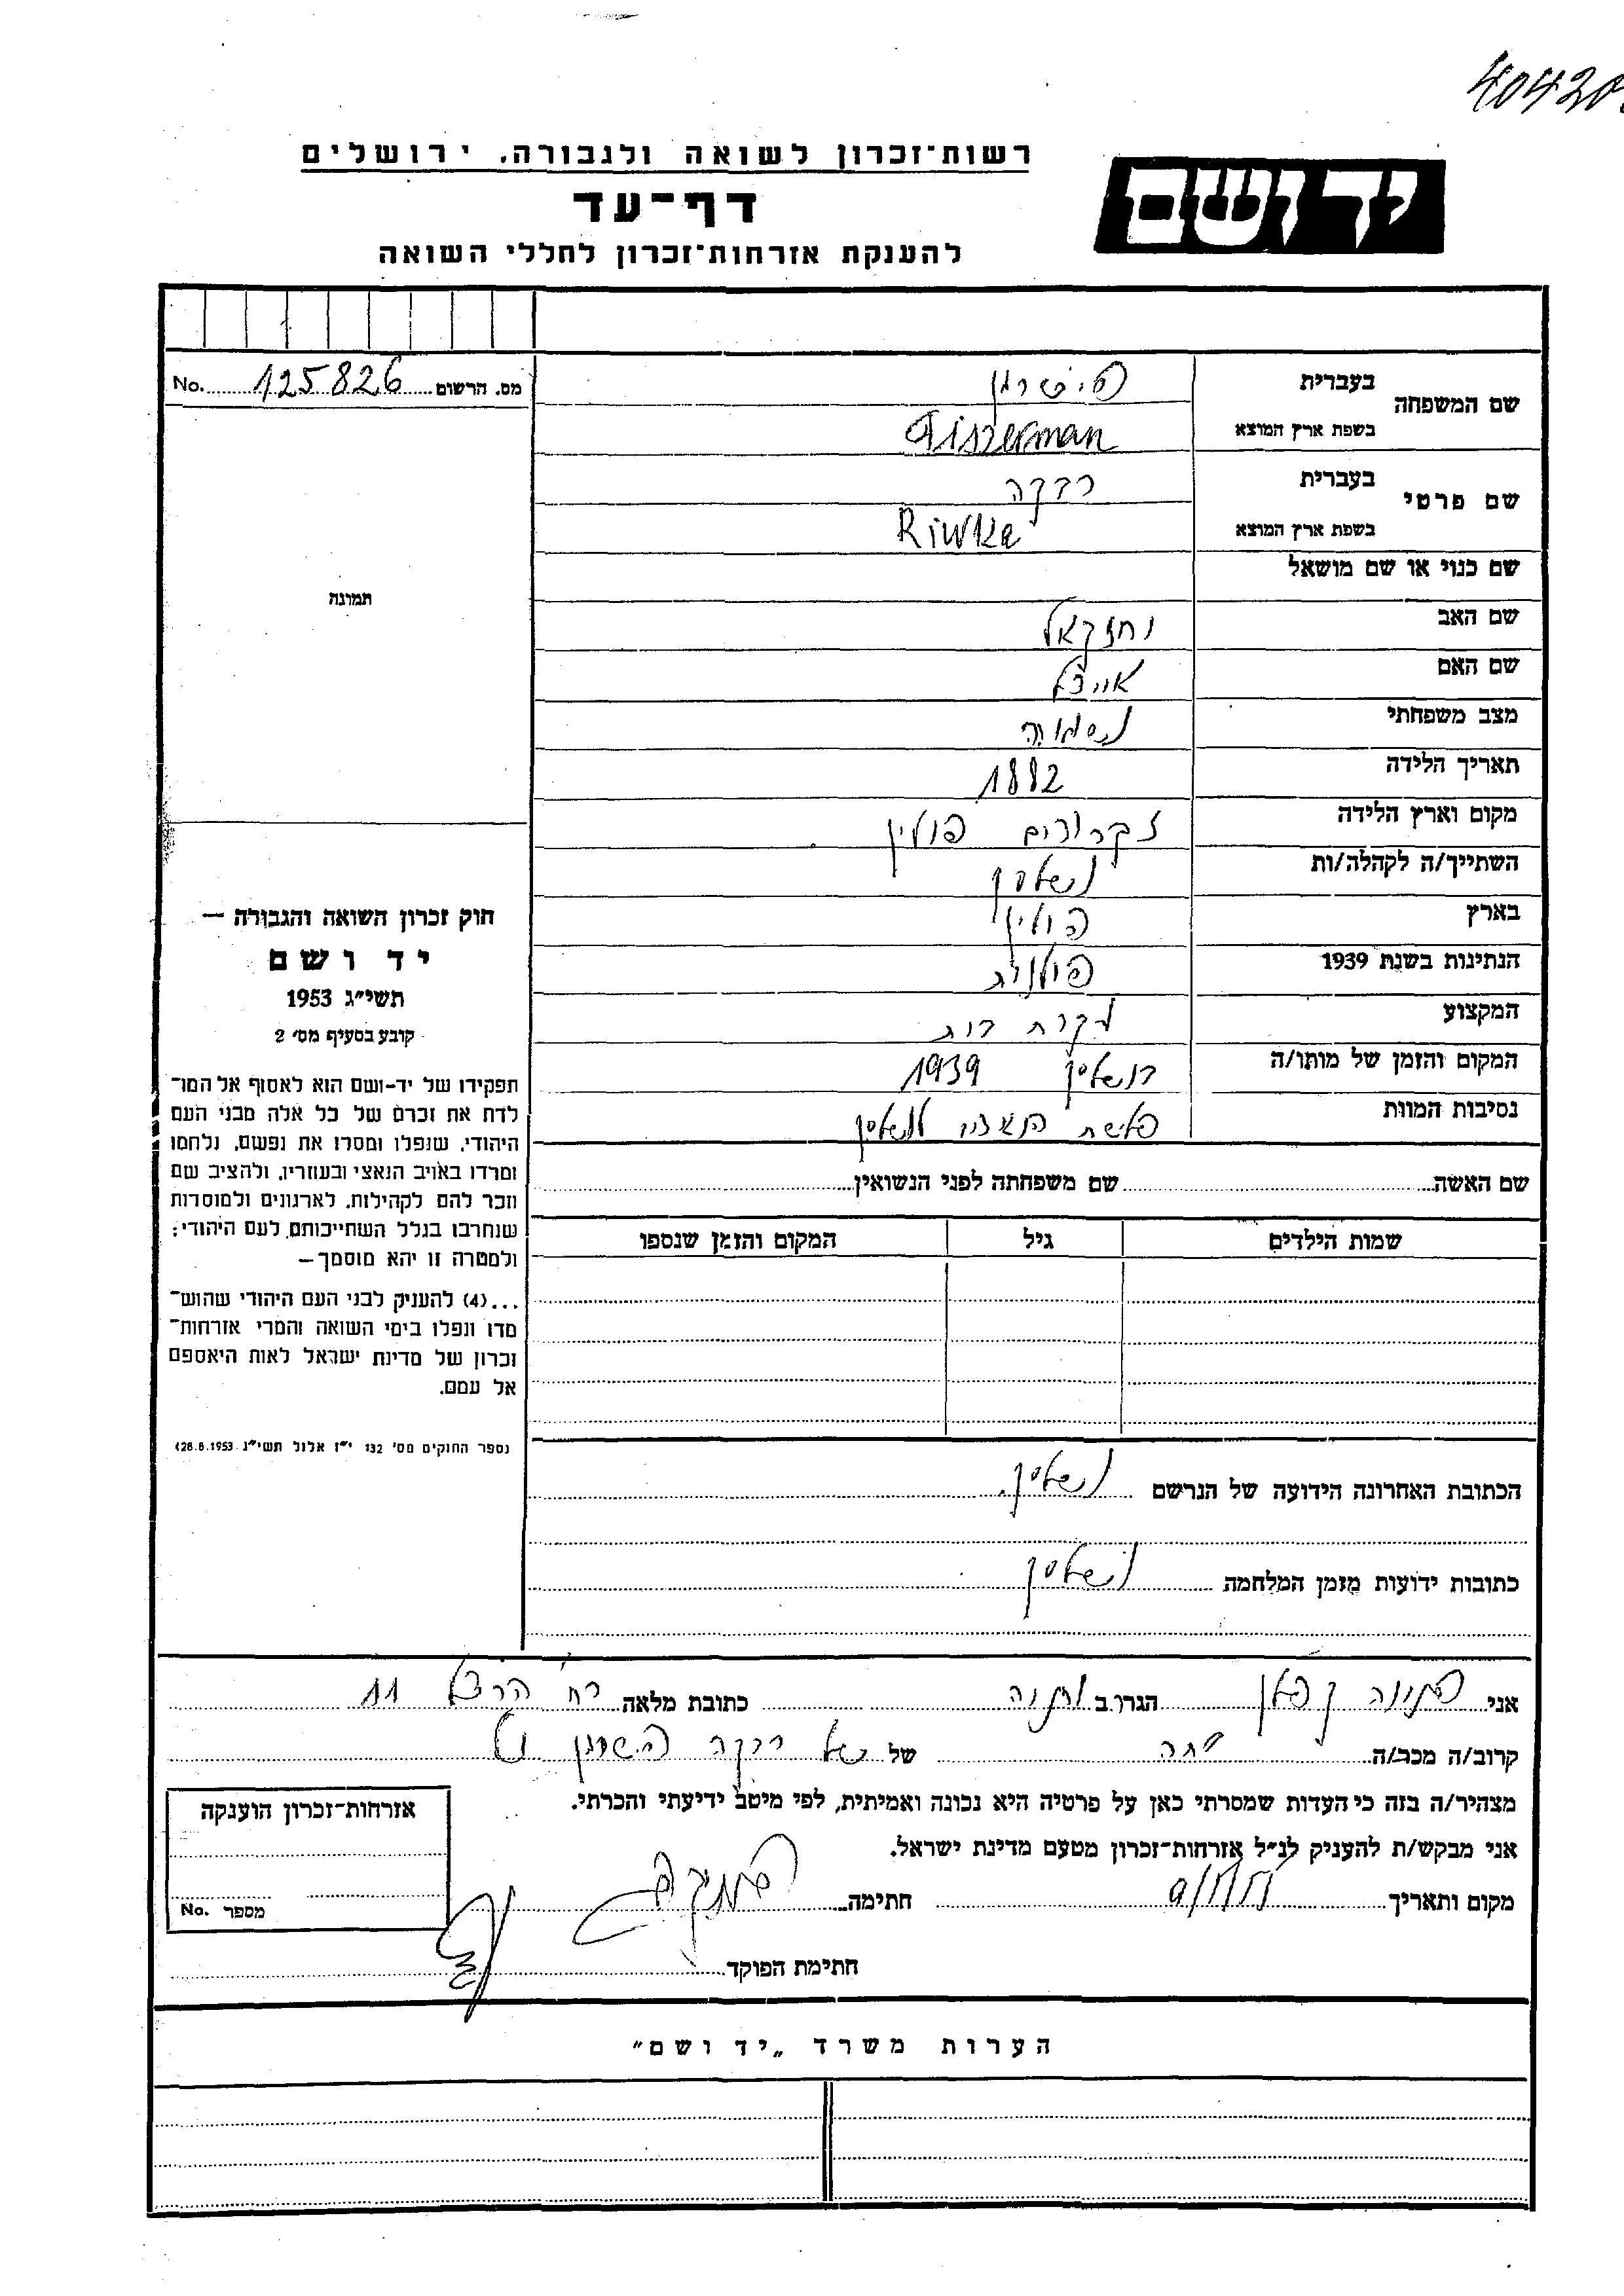 40420
רשות־זכרון לשואה ולגבורה, ירושלים
יד ושם
דף־עד
להענקת אזרחות־זכרון לחללי השואה
No. 125826 מס. הרשום
שם המשפחה
בעברית
בשפת ארץ המוצא Fiszerman
שם פרטי
בעברית רבקה
בשפת ארץ המוצא Riwka
שם כנוי או שם מושאל
שם האב יחזקאל
שם האם
מצב משפחתי נשואה
תאריך הלידה 1882
מקום וארץ הלידה פולין
השתייך/ה לקהלה/ות
בארץ פולין
הנתינות בשנת 1939 פולנית
המקצוע עקרת בית
המקום והזמן של מותו/ה 1939
נסיבות המוות
שם האשה שם משפחתה לפני הנשואין
שמות הילדים גיל המקום והזמן שנספו
תמונה
חוק זכרון השואה והגבורה —
יד ושם
תשי״ג 1953
קובע בסעיף מס׳ 2
תפקידו של יד-ושם הוא לאסוף אל המו־
לדת את זכרם של כל אלה מבני העם
היהודי, שנפלו ומסרו את נפשם, נלחמו
ומרדו באויב הנאצי ובעוזריו, ולהציב שם
וזכר להם לקהילות, לארגונים ולמוסדות
שנחרבו בגלל השתייכותם לעם היהודי;
ולמטרה זו יהא מוסמך —
...(4) להעניק לבני העם היהודי שהוש־
מדו ונפלו בימי השואה והמרי אזרחות־
זכרון של מדינת ישראל לאות היאספם
אל עמם.
(ספר החוקים מס׳ 132 י״ז אלול תשי״ג 28.8.1953)
הכתובת האחרונה הידועה של הנרשם
כתובות ידועות מזמן המלחמה
אני הגר/ב כתובת מלאה רח׳ הרצל 11
קרוב/ה מכר/ה של רבקה
מצהיר/ה בזה כי העדות שמסרתי כאן על פרטיה היא נכונה ואמיתית, לפי מיטב ידיעתי והכרתי.
אני מבקש/ת להעניק לנ״ל אזרחות־זכרון מטעם מדינת ישראל.
מקום ותאריך חתימה
חתימת הפוקד
אזרחות־זכרון הוענקה
No. מספר
הערות משרד „יד ושם״